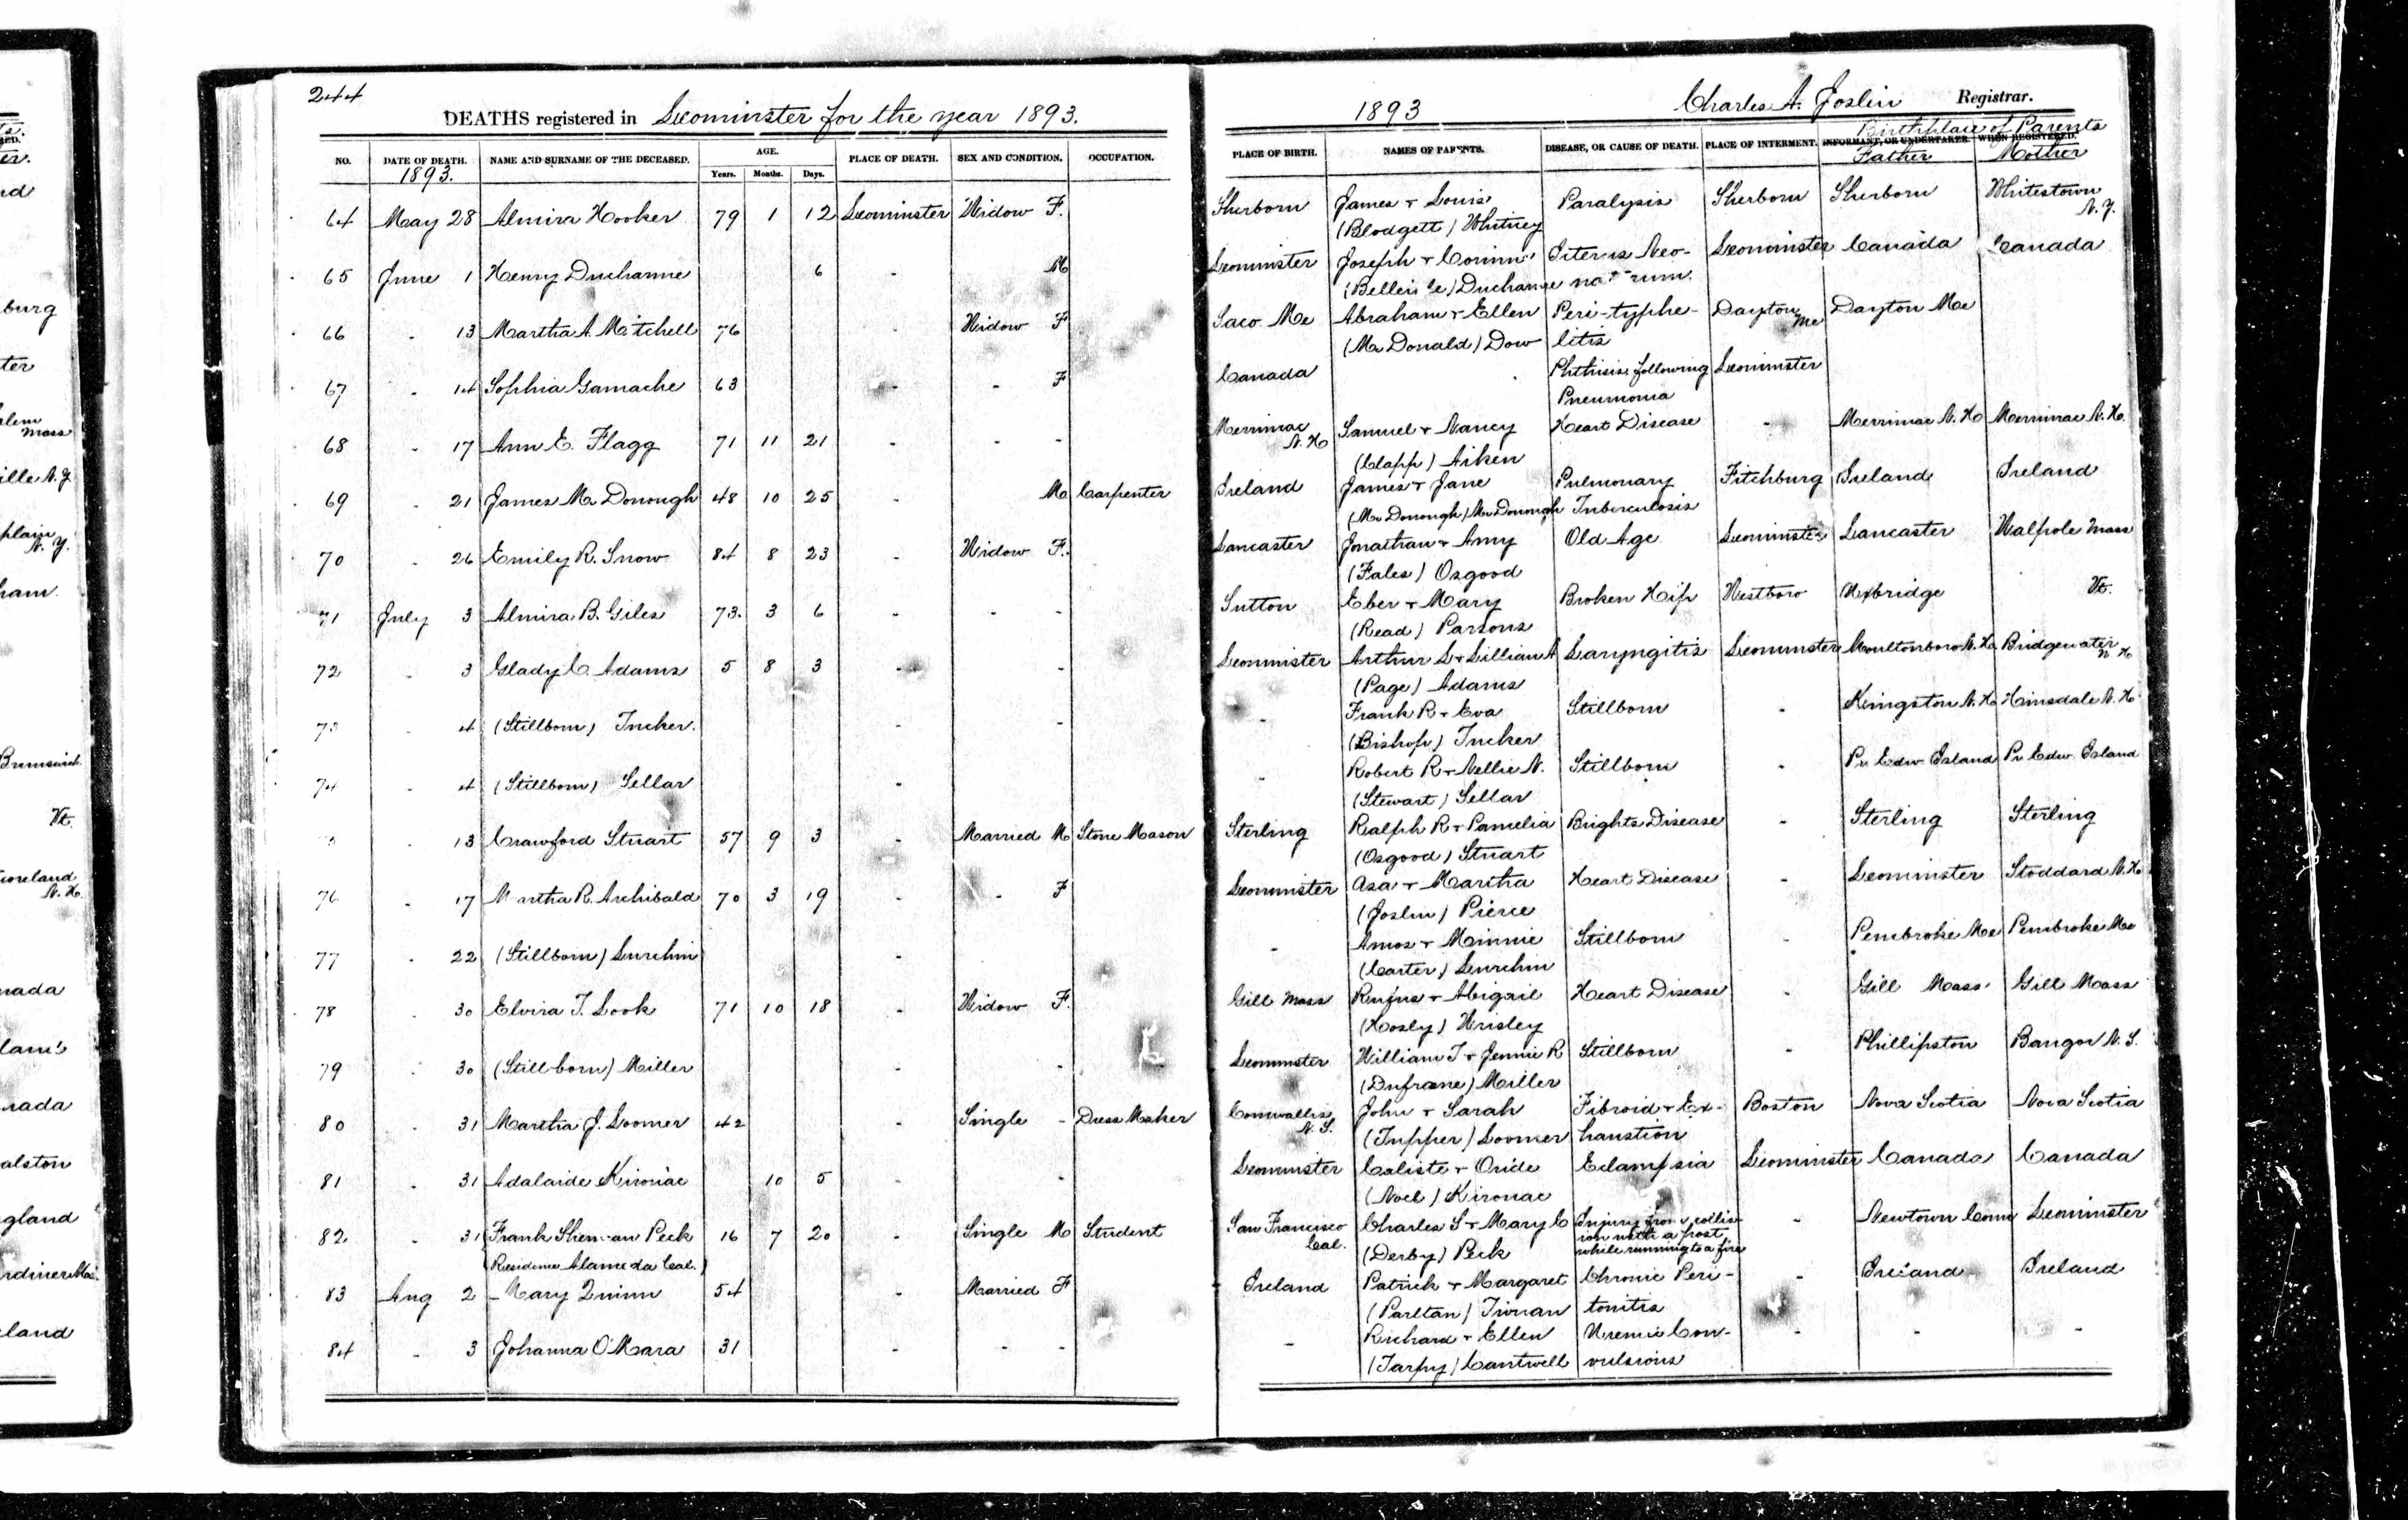 244
DEATHS registered in Leominster for the year 1893.
1893 Charles A. Joslin Registrar.
Birthplace of Parents
NO. DATE OF DEATH. NAME AND SURNAME OF THE DECEASED. AGE. PLACE OF DEATH. SEX AND CONDITION. OCCUPATION. PLACE OF BIRTH. NAMES OF PARENTS. DISEASE, OR CAUSE OF DEATH. PLACE OF INTERMENT. INFORMANT, OR UNDERTAKER. WHEN REGISTERED.
1893. Years. Months. Days. Father Mother
64 May 28 Almira Hooker 79 1 12 Leominster Widow F. Sherborn James + Louis Paralysis Sherborn Sherborn Whitestown N.Y.
(Blodgett) Whitney
65 June 1 Henry Ducharme 6 - M Leominster Joseph + Icterus Neo- Leominster Canada Canada
Ducharme
66 - 13 Martha A. Mitchell 76 - Widow F Saco Me Abraham + Ellen Peri-typhe- Dayton Me Dayton Me
(McDonald) Dow litis
67 - 14 Sophia Gamache 63 - - F Canada Phthisis following Leominster
Pneumonia
68 - 17 Ann E. Flagg 71 11 21 - - - Merrimac N.H. Samuel + Nancy Heart Disease - Merrimac N.H. Merrimac N.H.
(Clapp) Aiken
69 - 21 James McDonough 48 10 25 - M Carpenter Ireland James + Jane Pulmonary Fitchburg Ireland Ireland
(McDonough) McDonough Tuberculosis
70 - 26 Emily R. Snow 84 8 23 - Widow F. Lancaster Jonathan + Amy Old Age Leominster Lancaster Walpole Mass
(Fales) Osgood
71 July 3 Almira B. Giles 73. 3 6 - - - Sutton Eber + Mary Broken Hip Westboro Uxbridge Vt.
(Read) Parsons
72 - 3 Glady C. Adams 5 8 3 - - Leominster Arthur L + Lillian A Laryngitis Leominster Moultonboro N.H. Bridgewater N H
(Page) Adams
73 - 4 (Stillborn) Tucker. - - - Frank R + Eva Stillborn - Kingston N.H. Hinsdale N.H.
(Bishop) Tucker
74 - 4 (Stillborn) Sellar - - Robert R + Nellie N. Stillborn - Pr. Edw. Island Pr. Edw. Island
(Stewart) Sellar
- 13 Crawford Stuart 57 9 3 - Married M Stone Mason Sterling Ralph R + Pamelia Brights Disease - Sterling Sterling
(Osgood) Stuart
76 - 17 Martha R. Archibald 70 3 19 - - F Leominster Asa + Martha Heart Disease - Leominster Stoddard N.H.
(Joslin) Pierce
77 - 22 (Stillborn) Lurchin - - Amos + Minnie Stillborn - Pembroke Me Pembroke Me
(Carter) Lurchin
78 - 30 Elvira T. Look 71 10 18 - Widow F. Gill Mass Rufus + Abigail Heart Disease - Gill Mass Gill Mass
(Hosly) Wrisley
79 - 30 (Stillborn) Miller - - Leominster William T + Jennie R Stillborn - Phillipston Bangor N.Y.
(Dufrane) Miller
80 - 31 Martha J. Loomer 42 - Single - Dress Maker Cornwallis N.S. John + Sarah Fibroid + Ex- Boston Nova Scotia Nova Scotia
(Tupper) Loomer haustion
81 - 31 Adalaide Kirouac 10 5 - - Leominster Caliste + Oride Eclampsia Leominster Canada Canada
(Noel) Kirouac
82 - 31 Frank Sherman Peck 16 7 20 - Single M Student San Francisco Cal. Charles S + Mary C Injury from collis- - Newtown Conn Leominster
(Residence Alameda Cal.) (Derby) Peck ion with a post
while running to a fire
83 Aug 2 Mary Quinn 54 - Married F Ireland Patrick + Margaret Chronic Peri- - Ireland Ireland
tonitis
84 - 3 Johanna O'Mara 31 - - - - Richard + Ellen Uremic Con- - - -
(Tarpy) Cantwell vulsions